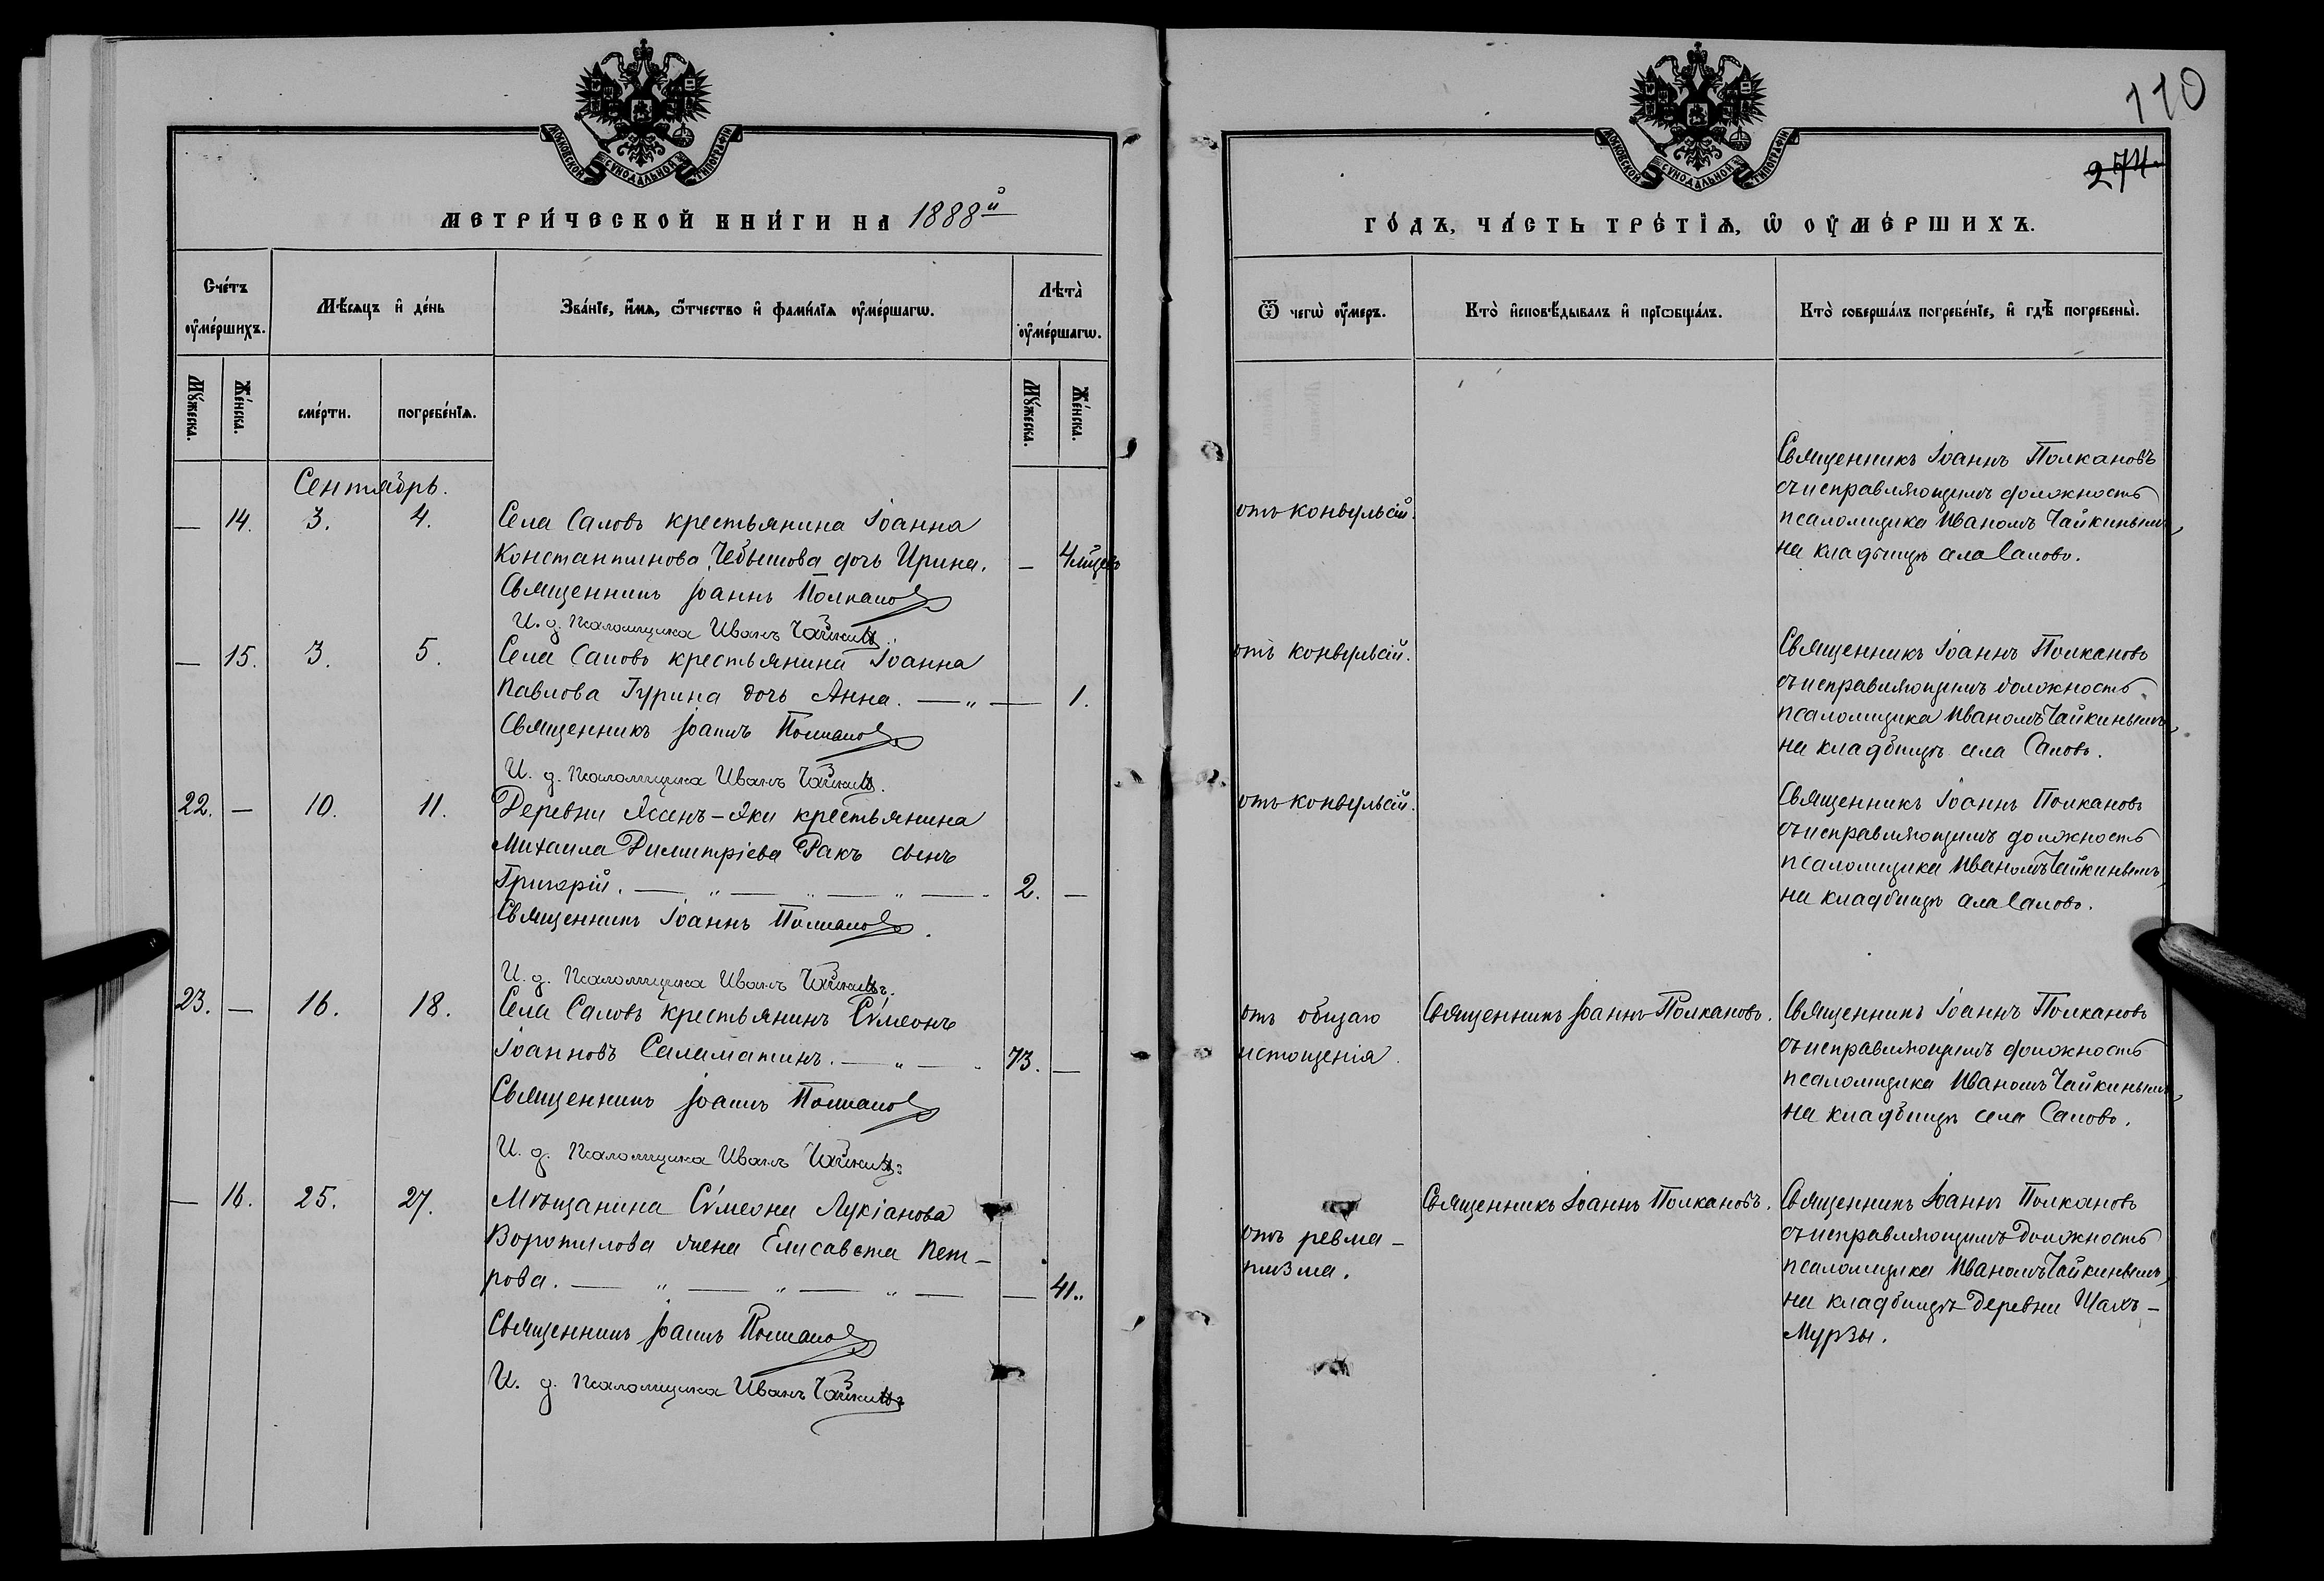 МОСКОВСКОЙ СѴНОДАЛЬНОЙ ТИПОГРАФІИ
МЕТРИ́ЧЕСКОЙ КНИ́ГИ НА 1888й
Сче́тъ ᲂу҆ме́ршихъ.
Мѣ́сяцъ и҆ де́нь
Зва́нїе, и҆́мѧ, ѻ҆́тчество и҆ фами́лїѧ ᲂу҆ме́ршагѡ.
Лѣта̀ ᲂу҆ме́ршагѡ.
Мꙋ́жеска.
Же́нска.
сме́рти.
погребе́нїѧ.
Мꙋ́жеска.
Же́нска.
Сентябрь.
— 14. 3. 4. Села Саловъ крестьянина Іоанна
Константинова Чебышова дочь Ирина. — 4 мѣсяцевъ
Священникъ Іоаннъ Полкановъ
И. д. Псаломщика Иванъ Чайкинъ.
— 15. 3. 5. Села Саловъ крестьянина Іоанна
Павлова Гурина дочь Анна. — „ — 1.
Священникъ Іоаннъ Полкановъ
И. д. Псаломщика Иванъ Чайкинъ.
22. — 10. 11. Деревни Ясенъ-Яки крестьянина
Михаила Димитріева Ракъ сынъ
Григорій. — „ — „ — „ — 2. —
Священникъ Іоаннъ Полкановъ.
И. д. Псаломщика Иванъ Чайкинъ.
23. — 16. 18. Села Саловъ крестьянинъ Сѵмеонъ
Іоанновъ Саламатинъ. — „ — 73. —
Священникъ Іоаннъ Полкановъ
И. д. Псаломщика Иванъ Чайкинъ.
— 16. 25. 27. Мѣщанина Сѵмеона Лукіанова
Воропилова жена Елисавета Пет-
рова. — „ — „ — „ — — 41.
Священникъ Іоаннъ Полкановъ
И. д. Псаломщика Иванъ Чайкинъ
110
274.
МОСКОВСКОЙ СѴНОДАЛЬНОЙ ТИПОГРАФІИ
ГО́ДЪ, ЧА́СТЬ ТРЕ́ТЇѦ, Ѡ҆ ᲂУ҆МЕ́РШИХЪ.
Ѿ чегѡ̀ ᲂу҆́меръ.
Кто̀ и҆сповѣ́дывалъ и҆ прїѡбща́лъ.
Кто̀ соверша́лъ погребе́нїе, и҆ гдѣ̀ погребены̀.
отъ конвульсій.
Священникъ Іоаннъ Полкановъ
съ исправляющимъ должность
псаломщика Иваномъ Чайкинымъ,
на кладбищѣ села Саловъ.
отъ конвульсій.
Священникъ Іоаннъ Полкановъ
съ исправляющимъ должность
псаломщика Иваномъ Чайкинымъ,
на кладбищѣ села Саловъ.
отъ конвульсій.
Священникъ Іоаннъ Полкановъ
съ исправляющимъ должность
псаломщика Иваномъ Чайкинымъ,
на кладбищѣ села Саловъ.
отъ общаго Священникъ Іоаннъ Полкановъ. Священникъ Іоаннъ Полкановъ
истощенія. съ исправляющимъ должность
псаломщика Иваномъ Чайкинымъ,
на кладбищѣ села Саловъ.
Священникъ Іоаннъ Полкановъ. Священникъ Іоаннъ Полкановъ
отъ ревма- съ исправляющимъ должность
тизма. псаломщика Иваномъ Чайкинымъ,
на кладбищѣ деревни Шахъ-
Мурзы.